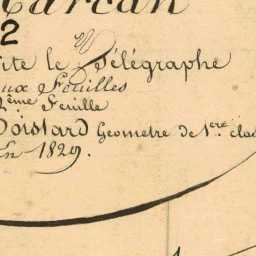 Marcan
2
ite le Télégraphe
ux Feuilles
2ème Feuille
Doistard Géometre de 1ere clas
En 1829.